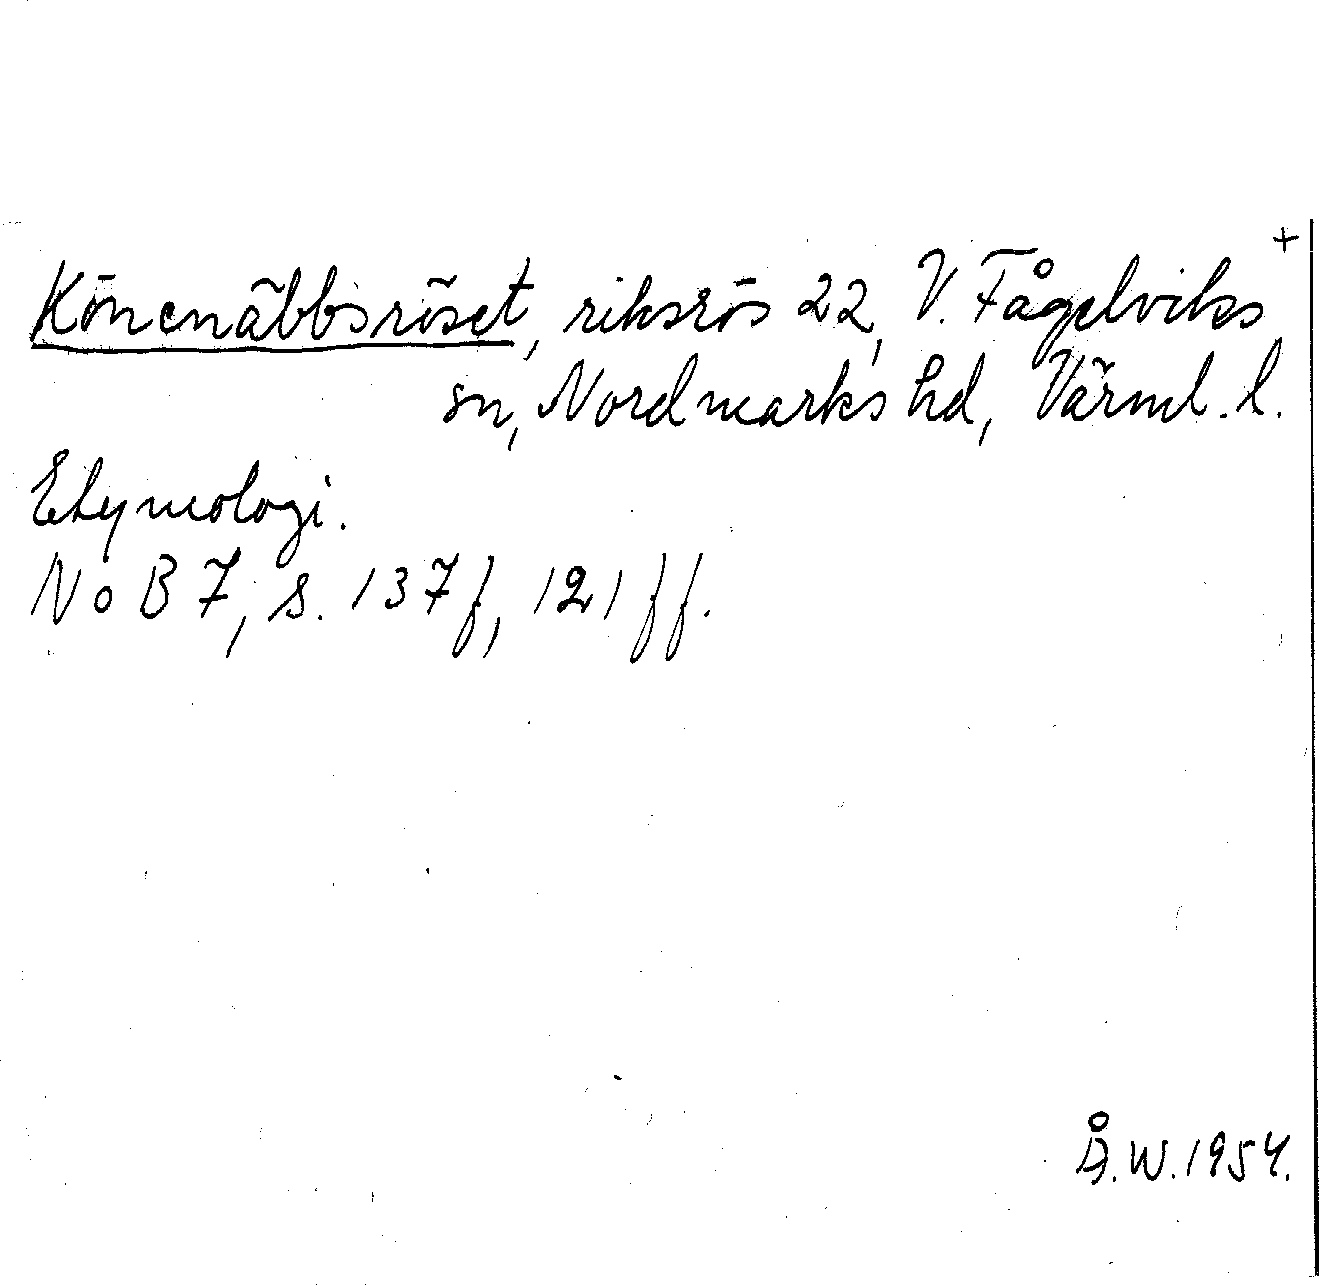 +
Könenäbbsröset, riksrös 22, V. Fågelviks
sn, Nordmarks hd, Värml. l.
Etymologi.
NoB 7, s. 137 f, 121 ff.
Å.W. 1954.